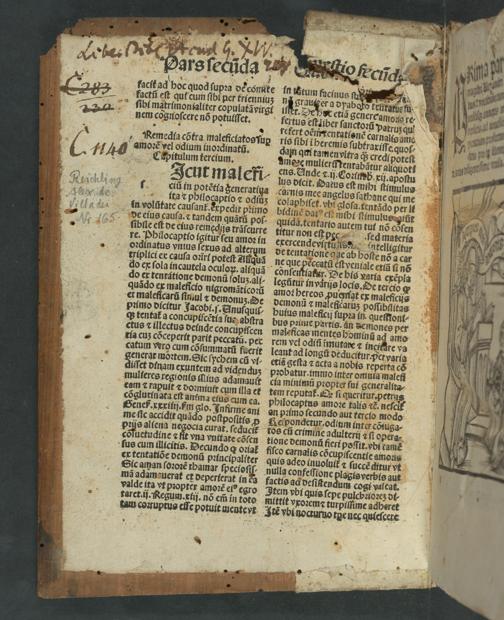 Liber Bibl. Acad. G. XVI.
Pars secūda
Questio secūda
C 283
220
C. 1140
Reichling
Alex. de
Villadei
Nr 165
facit ad hoc quod supra de comite
factū est qui cum sibi per trienniū
sibi matrimonialiter copulatā virgi
nem cognoscere nō potuisset.
Remedia cōtra maleficiatos sup
amore vel odium inordinatū.
Capitulum tercium.
Icut malefi
ciū in potētia generatiua
ita & philocaptio & odiū
in volūtate causant. expedit primo
de eius causa. & tandem quātū pos
sibile est de eius remedijs trāscurre
re. Philocaptio igitur seu amor in
ordinatus vnius sexus ad alterum
triplici ex causa oriri potest Aliquā
do ex sola incautela oculorū. aliquā
do ex tentatione demonū solū. ali
quādo ex maleficio nigromāticorū
et maleficarū simul & demonuz. De
primo dicitur Jacobi .j. Unusquis
qz tentat a concupiscētia sua, abstra
ctus & illectus deinde concupiscen
tia cuz cōceperit parit peccatū. pec
catum vero cum cōsummatū fuerit
generat mortem. Sic sychem cū vi
disset dinam exuntem ad videnduz
mulieres regionis illius adamauit
eam & rapuit & dormiuit cum illa et
cōglutinata est anima eius cum ea.
Gene. xxxiiij. Em glo. Infirme ani
me sic accidit quādo postpositis p
prijs aliena negocia curat. seducit
cōsuetudine & fit vna vnitate cōsen
sus cum illicitis. Secundo qz oriat
ex tentatiōe demonū principaliter
Sic aman sororē thamar speciosis
simā adamauerat et deperierat in ea
valde ita vt propter amorē eius egro
taret .ij. Regum. xiij. nō em in toto
tam corruptus esse potuit mente vt
in tātum facinus
nisi grauiter a dyabolo tentatus fu
isset. De hoc etiā genere amoris re
fertus est liber sanctorū patrū qui
refert oēm tentationē carnalis amo
ris sibi i heremis subtraxisse quos
dam qui tamen vltra qz credi potest
amore mulierū tentabātur aliquoti
ens. Unde .ij. Corinth. xij. aposto
lus dicit. Datus est mihi stimulus
carnis mee angelus sathane qui me
colaphiset. vbi glosa. tentādo per li
bidinē datus est mihi stimulus
quidā. tentatio autem cui nō consen
titur non est peccatū sed materia
exercende virtutis. intelligitur
de tentatione que ab hoste nō a car
ne que peccatū est veniale etiā si nō
consentiatur. De his varia exēpla
legūtur in varijs locis. De tercio &
amor hereos proueniat ex maleficijs
demonū & maleficarū possibilitas
huius maleficij supra in questioni
bus prime partis. an demones per
maleficas mentes hominū ad amo
rem vel odiū imutare & incitare va
leant ad longū deducitur. per varia
etiā gesta & acta a nobis reperta cō
probatur. immo inter omnia malefi
cia minimū propter sui generalita
tem reputat. Qz si queritur. petrus
philocaptus amore talis &c. nescit
an primo secundo aut tercio modo
Respondetur. odium inter cōiuga
tos cū crimine adulterij & si opera
tione demonū fieri possit. vbi tamē
fisco carnalis cōcupiscentie amoris
quis adeo inuoluit & succēditur vt
nulla confessione plagis verbis aut
factis ad desistendum cogi valeat.
Item vbi quis sepe pulchriorez di
mittit vxorem & turpissime adheret
Itē vbi nocturno tpe nec quiescere